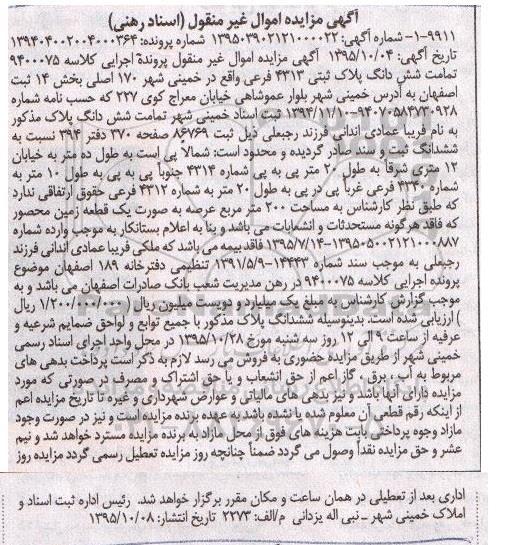 آگهی مزایده اموال غیر منقول (اسناد رهنی)
۹۹۱۱-۱- شماره آگهی: ۱۳۹۵۰۳۹۰۲۱۲۱۰۰۰۰۲۲ شماره پرونده: ۱۳۹۴۰۴۰۰۲۰۰۴۰۰۰۳۶۴
تاریخ آگهی: ۱۳۹۵/۱۰/۰۴ آگهی مزایده اموال غیر منقول پرونده اجرایی کلاسه ۹۴۰۰۰۷۵
تمامت شش دانگ پلاک ثبتی ۴۳۱۳ فرعی واقع در خمینی شهر ۱۷۰ اصلی بخش ۱۴ ثبت
اصفهان به آدرس خمینی شهر بلوار عموشاهی خیابان معراج کوی ۲۲۷ که حسب نامه شماره
۹۴۰۷۰۵۸۴۷۲۰۹۲۸-۱۳۹۴/۱۱/۱۰ ثبت اسناد خمینی شهر تمامت شش دانگ پلاک مذکور
به نام فریبا عمادی اندانی فرزند رجبعلی ذیل ثبت ۸۶۷۶۹ صفحه ۳۷۰ دفتر ۳۹۴ نسبت به
ششدانگ ثبت و سند صادر گردیده و محدود است: شمالا پی است به طول ده متر به خیابان
۱۲ متری شرقا به طول ۲۰ متر پی به پی شماره ۴۳۱۴ جنوبا پی به پی به طول ۱۰ متر به
شماره ۴۳۴۰ فرعی غربا پی در پی به طول ۲۰ متر به شماره ۴۳۱۲ فرعی حقوق ارتفاقی ندارد
که طبق نظر کارشناس به مساحت ۲۰۰ متر مربع عرصه به صورت یک قطعه زمین محصور
که فاقد هرگونه مستحدثات و انشعابات می باشد و بنا به اعلام بستانکار به موجب وارده شماره
۱۳۹۵۰۵۰۰۲۱۲۱۰۰۰۸۸۷-۱۳۹۵/۷/۱۴ فاقد بیمه می باشد که ملکی فریبا عمادی اندانی فرزند
رجبعلی به موجب سند شماره ۱۴۴۴۳-۱۳۹۱/۵/۹ تنظیمی دفترخانه ۱۸۹ اصفهان موضوع
پرونده اجرایی کلاسه ۹۴۰۰۰۷۵ در رهن مدیریت شعب بانک صادرات اصفهان می باشد و به
موجب گزارش کارشناس به مبلغ یک میلیارد و دویست میلیون ریال (۱/۲۰۰/۰۰۰/۰۰۰ ریال
) ارزیابی شده است. بدینوسیله ششدانگ پلاک مذکور با جمیع توابع و لواحق ضمایم شرعیه و
عرفیه از ساعت ۹ الی ۱۲ روز سه شنبه مورخ ۱۳۹۵/۱۰/۲۸ در محل واحد اجرای اسناد رسمی
خمینی شهر از طریق مزایده حضوری به فروش می رسد لازم به ذکر است پرداخت بدهی های
مربوط به آب ، برق ، گاز اعم از حق انشعاب و یا حق اشتراک و مصرف در صورتی که مورد
مزایده دارای آنها باشد و نیز بدهی های مالیاتی و عوارض شهرداری و غیره تا تاریخ مزایده اعم
از اینکه رقم قطعی آن معلوم شده یا نشده باشد به عهده برنده مزایده است و نیز در صورت وجود
مازاد وجوه پرداختی بابت هزینه های فوق از محل مازاد به برنده مزایده مسترد خواهد شد و نیم
عشر و حق مزایده نقدا وصول می گردد ضمنا چنانچه روز مزایده تعطیل رسمی گردد مزایده روز
اداری بعد از تعطیلی در همان ساعت و مکان مقرر برگزار خواهد شد. رئیس اداره ثبت اسناد و
املاک خمینی شهر – نبی اله یزدانی م/الف: ۲۲۷۳ تاریخ انتشار: ۱۳۹۵/۱۰/۰۸